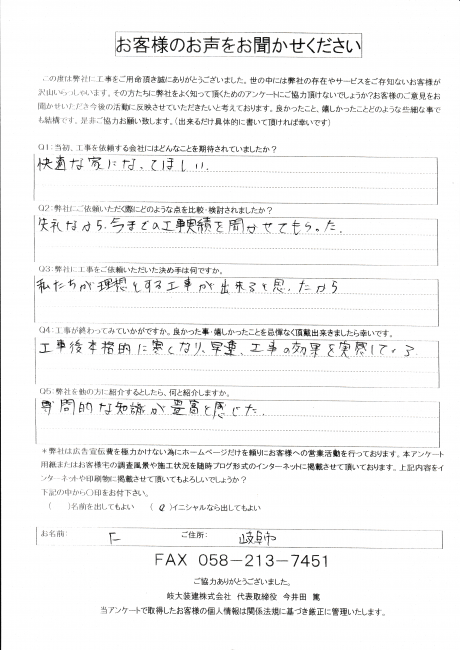 お客様のお声をお聞かせください
この度は弊社に工事をご用命頂き誠にありがとうございました。世の中には弊社の存在やサービスをご存知ないお客様が
沢山いらっしゃいます。その方たちに弊社をよく知って頂くためのアンケートにご協力頂けないでしょうか?お客様のご意見をお
聞かせいただき今後の活動に反映させていただきたいと考えております。良かったこと、嬉しかったことどのような些細な事で
も結構です。是非ご協力お願い致します。(出来るだけ具体的に書いて頂ければ幸いです)
Q1:当初、工事を依頼する会社にはどんなことを期待されていましたか?
快適な家になってほしい。
Q2:弊社にご依頼いただく際にどのような点を比較・検討されましたか?
失礼ながら、今までの工事実績を聞かせてもらった。
Q3:弊社に工事をご依頼いただいた決め手は何ですか。
私たちが理想とする工事が出来ると思ったから
Q4:工事が終わってみていかがですか。良かった事・嬉しかったことを忌憚なく頂戴出来きましたら幸いです。
工事後本格的に寒くなり、早速、工事の効果を実感している
Q5:弊社を他の方に紹介するとしたら、何と紹介しますか。
専問的な知識が豊富と感じた。
*弊社は広告宣伝費を極力かけない為にホームページだけを頼りにお客様への営業活動を行っております。本アンケート
用紙またはお客様宅の調査風景や施工状況を随時ブログ形式のインターネットに掲載させて頂いております。上記内容をイ
ンターネットや印刷物に掲載させて頂いてもよろしいでしょうか?
下記の中から〇印をお付下さい。
( )名前を出してもよい ( 〇 )イニシャルなら出してもよい
お名前: F ご住所: 岐阜市
FAX 058-213-7451
ご協力ありがとうございました。
岐大装建株式会社 代表取締役 今井田 篤
当アンケートで取得したお客様の個人情報は関係法規に基づき厳正に管理いたします。